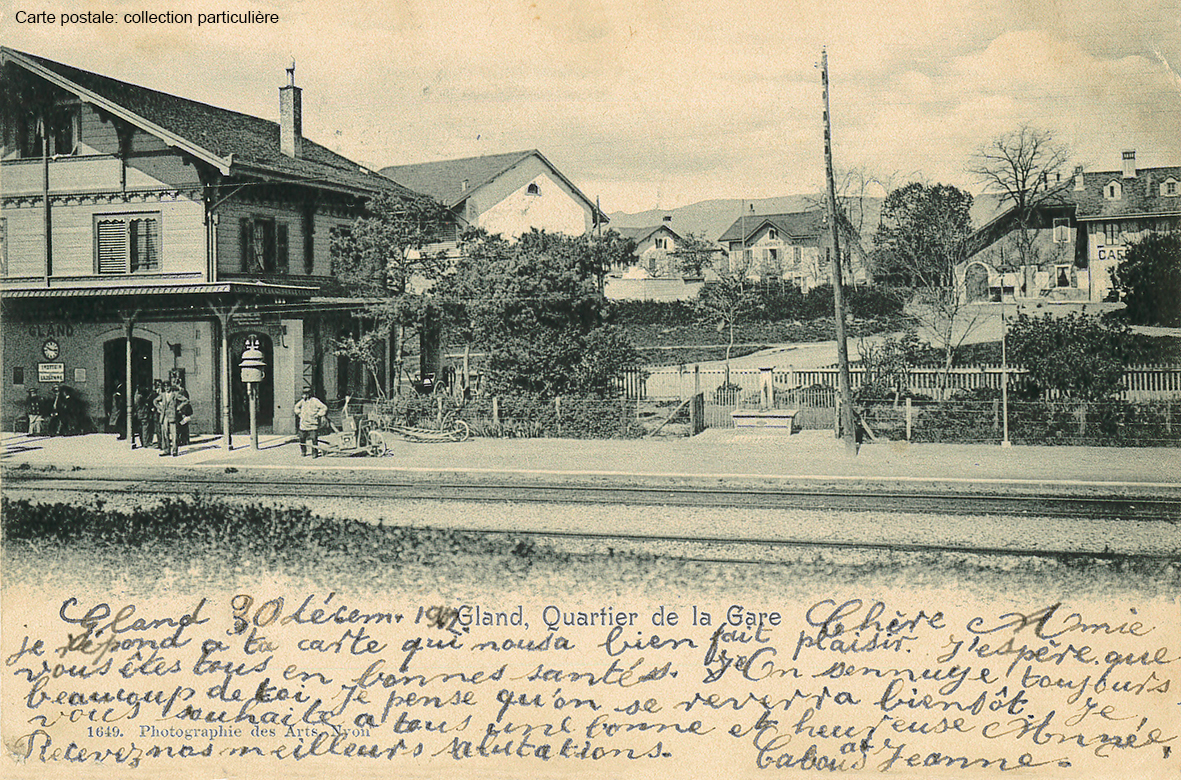 Carte postale: collection particulière
GLAND
CAF
Gland 30 décem. 190
Gland, Quartier de la Gare
Chère Amie
je répond a ta carte qui nousa bien fait plaisir. J'espère que
vous êtes tous en bonnes santés. On sennuye toujours
beaucoup de toi. Je pense qu'on se reverra bientôt. Je
vous souhaite a tous une bonne et heureuse Année
1649. Photographie des Arts, Nyon
Recevez nos meilleurs salutations.
Jeanne.